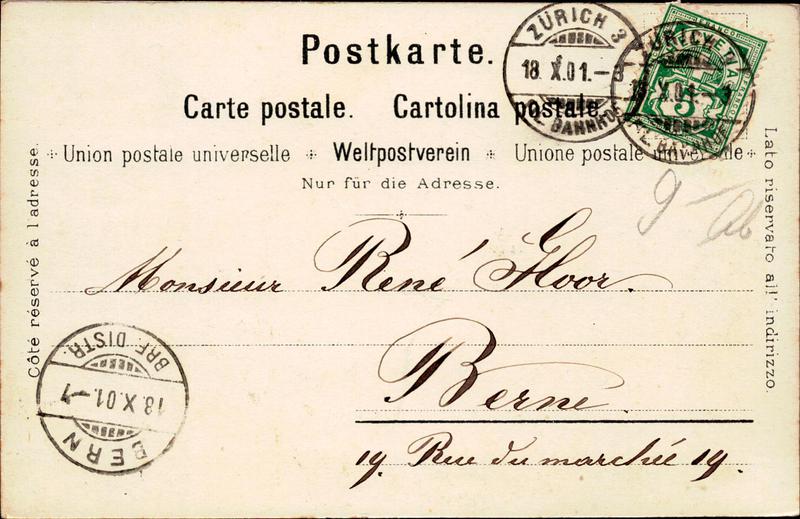 Postkarte.
Carte postale. Cartolina postale.
Union postale universelle Weltpostverein Unione postale universale
Nur für die Adresse.
Côté réservé à l'adresse.
Lato riservato all' indirizzo.
ZÜRICH 3
18. X. 01. – 3
FIL. BAHNHOF
FRANCO
5
ZÜRICH
X. 01
FIL. BAHNHOF
9 –
Monsieur René Floor.
Berne.
19. Rue du marchée 19.
BRF. DISTR.
18. X. 01. – 7
BERN